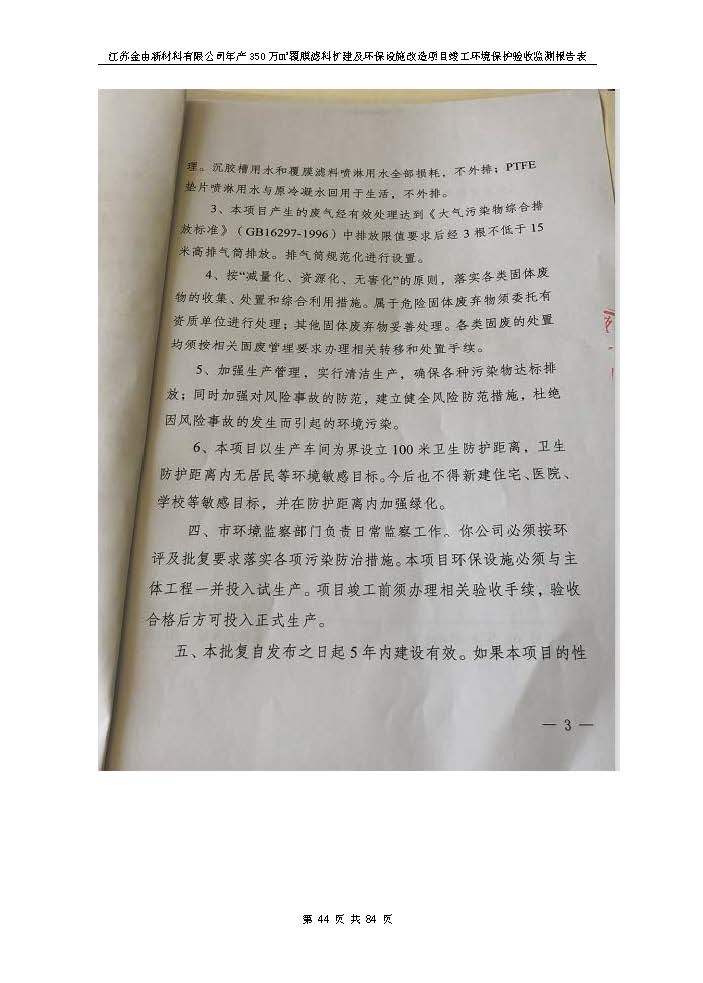 江苏金由新材料有限公司年产 350 万㎡覆膜滤料扩建及环保设施改造项目竣工环境保护验收监测报告表
理。沉胶槽用水和覆膜滤料喷淋用水全部损耗，不外排；PTFE
垫片喷淋用水与原冷凝水回用于生活，不外排。
3、本项目产生的废气经有效处理达到《大气污染物综合排
放标准》（GB16297-1996）中排放限值要求后经 3 根不低于 15
米高排气筒排放。排气筒规范化进行设置。
4、按“减量化、资源化、无害化”的原则，落实各类固体废
物的收集、处置和综合利用措施。属于危险固体废弃物须委托有
资质单位进行处理；其他固体废弃物妥善处理。各类固废的处置
均须按相关固废管理要求办理相关转移和处置手续。
5、加强生产管理，实行清洁生产，确保各种污染物达标排
放；同时加强对风险事故的防范，建立健全风险防范措施，杜绝
因风险事故的发生而引起的环境污染。
6、本项目以生产车间为界设立 100 米卫生防护距离，卫生
防护距离内无居民等环境敏感目标。今后也不得新建住宅、医院、
学校等敏感目标，并在防护距离内加强绿化。
四、市环境监察部门负责日常监察工作。你公司必须按环
评及批复要求落实各项污染防治措施。本项目环保设施必须与主
体工程一并投入试生产。项目竣工前须办理相关验收手续，验收
合格后方可投入正式生产。
五、本批复自发布之日起 5 年内建设有效。如果本项目的性
— 3 —
第 44 页 共 84 页